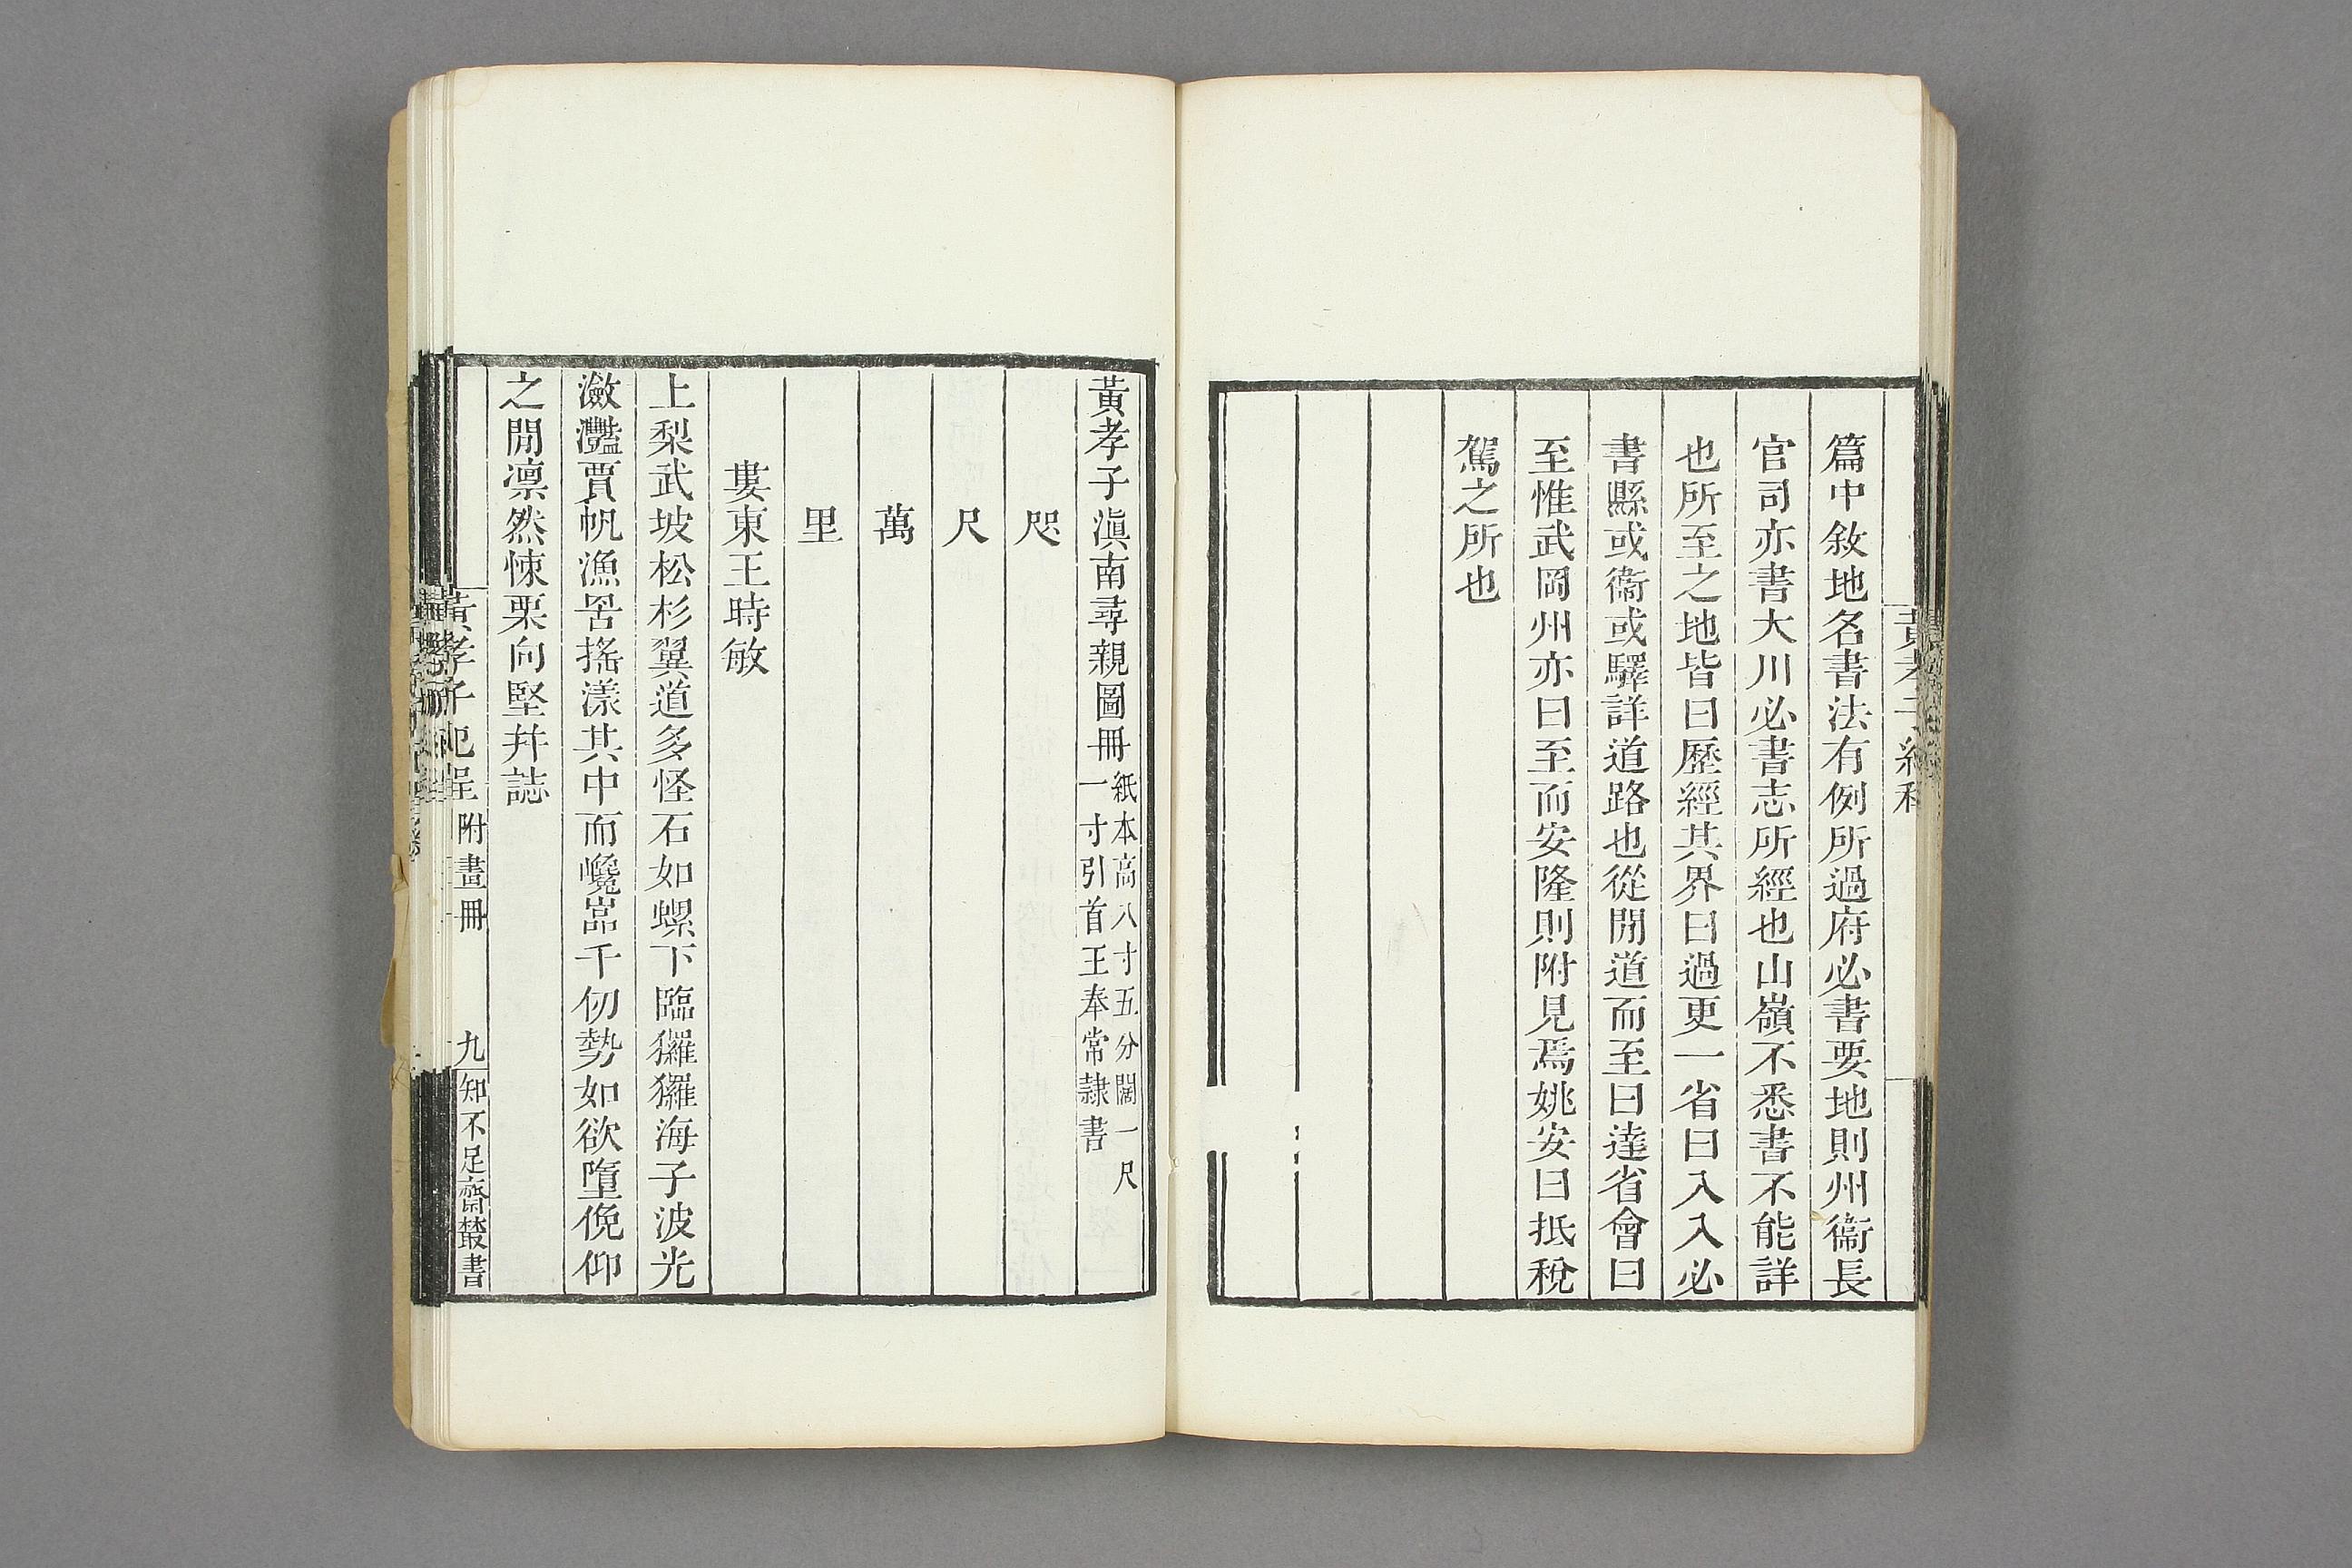 篇中敘地名書法有例所過府必書要地則州衞長
官司亦書大川必書志所經也山嶺不悉書不能詳
也所至之地皆曰歷經其界曰過更一省曰入入必
書縣或衞或驛詳道路也從閒道而至曰達省會曰
至惟武岡州亦曰至而安隆則附見焉姚安曰抵稅
駕之所也
黃孝子滇南尋親圖冊
紙本高八寸五分闊一尺
一寸引首王奉常隷書
咫
尺
萬
里
婁東王時敏
上梨武坡松杉翼道多怪石如螺下臨玀玀海子波光
瀲灩賈帆漁罟搖漾其中而巉嵓千仞勢如欲墮俛仰
之閒凛然悚栗向堅幷誌
黃孝子
附畫冊
九
知不足齋叢書